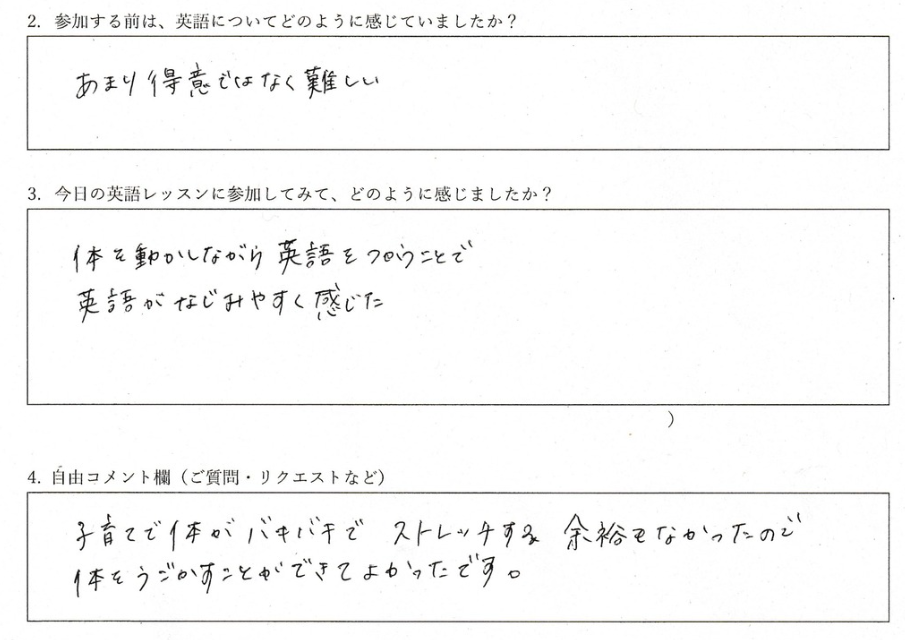 2. 参加する前は、英語についてどのように感じていましたか？
あまり得意ではなく難しい
3. 今日の英語レッスンに参加してみて、どのように感じましたか？
体を動かしながら英語をつかうことで
英語がなじみやすく感じた
）
4. 自由コメント欄（ご質問・リクエストなど）
子育てで体がバキバキで ストレッチする 余裕もなかったので
体をうごかすことができてよかったです。